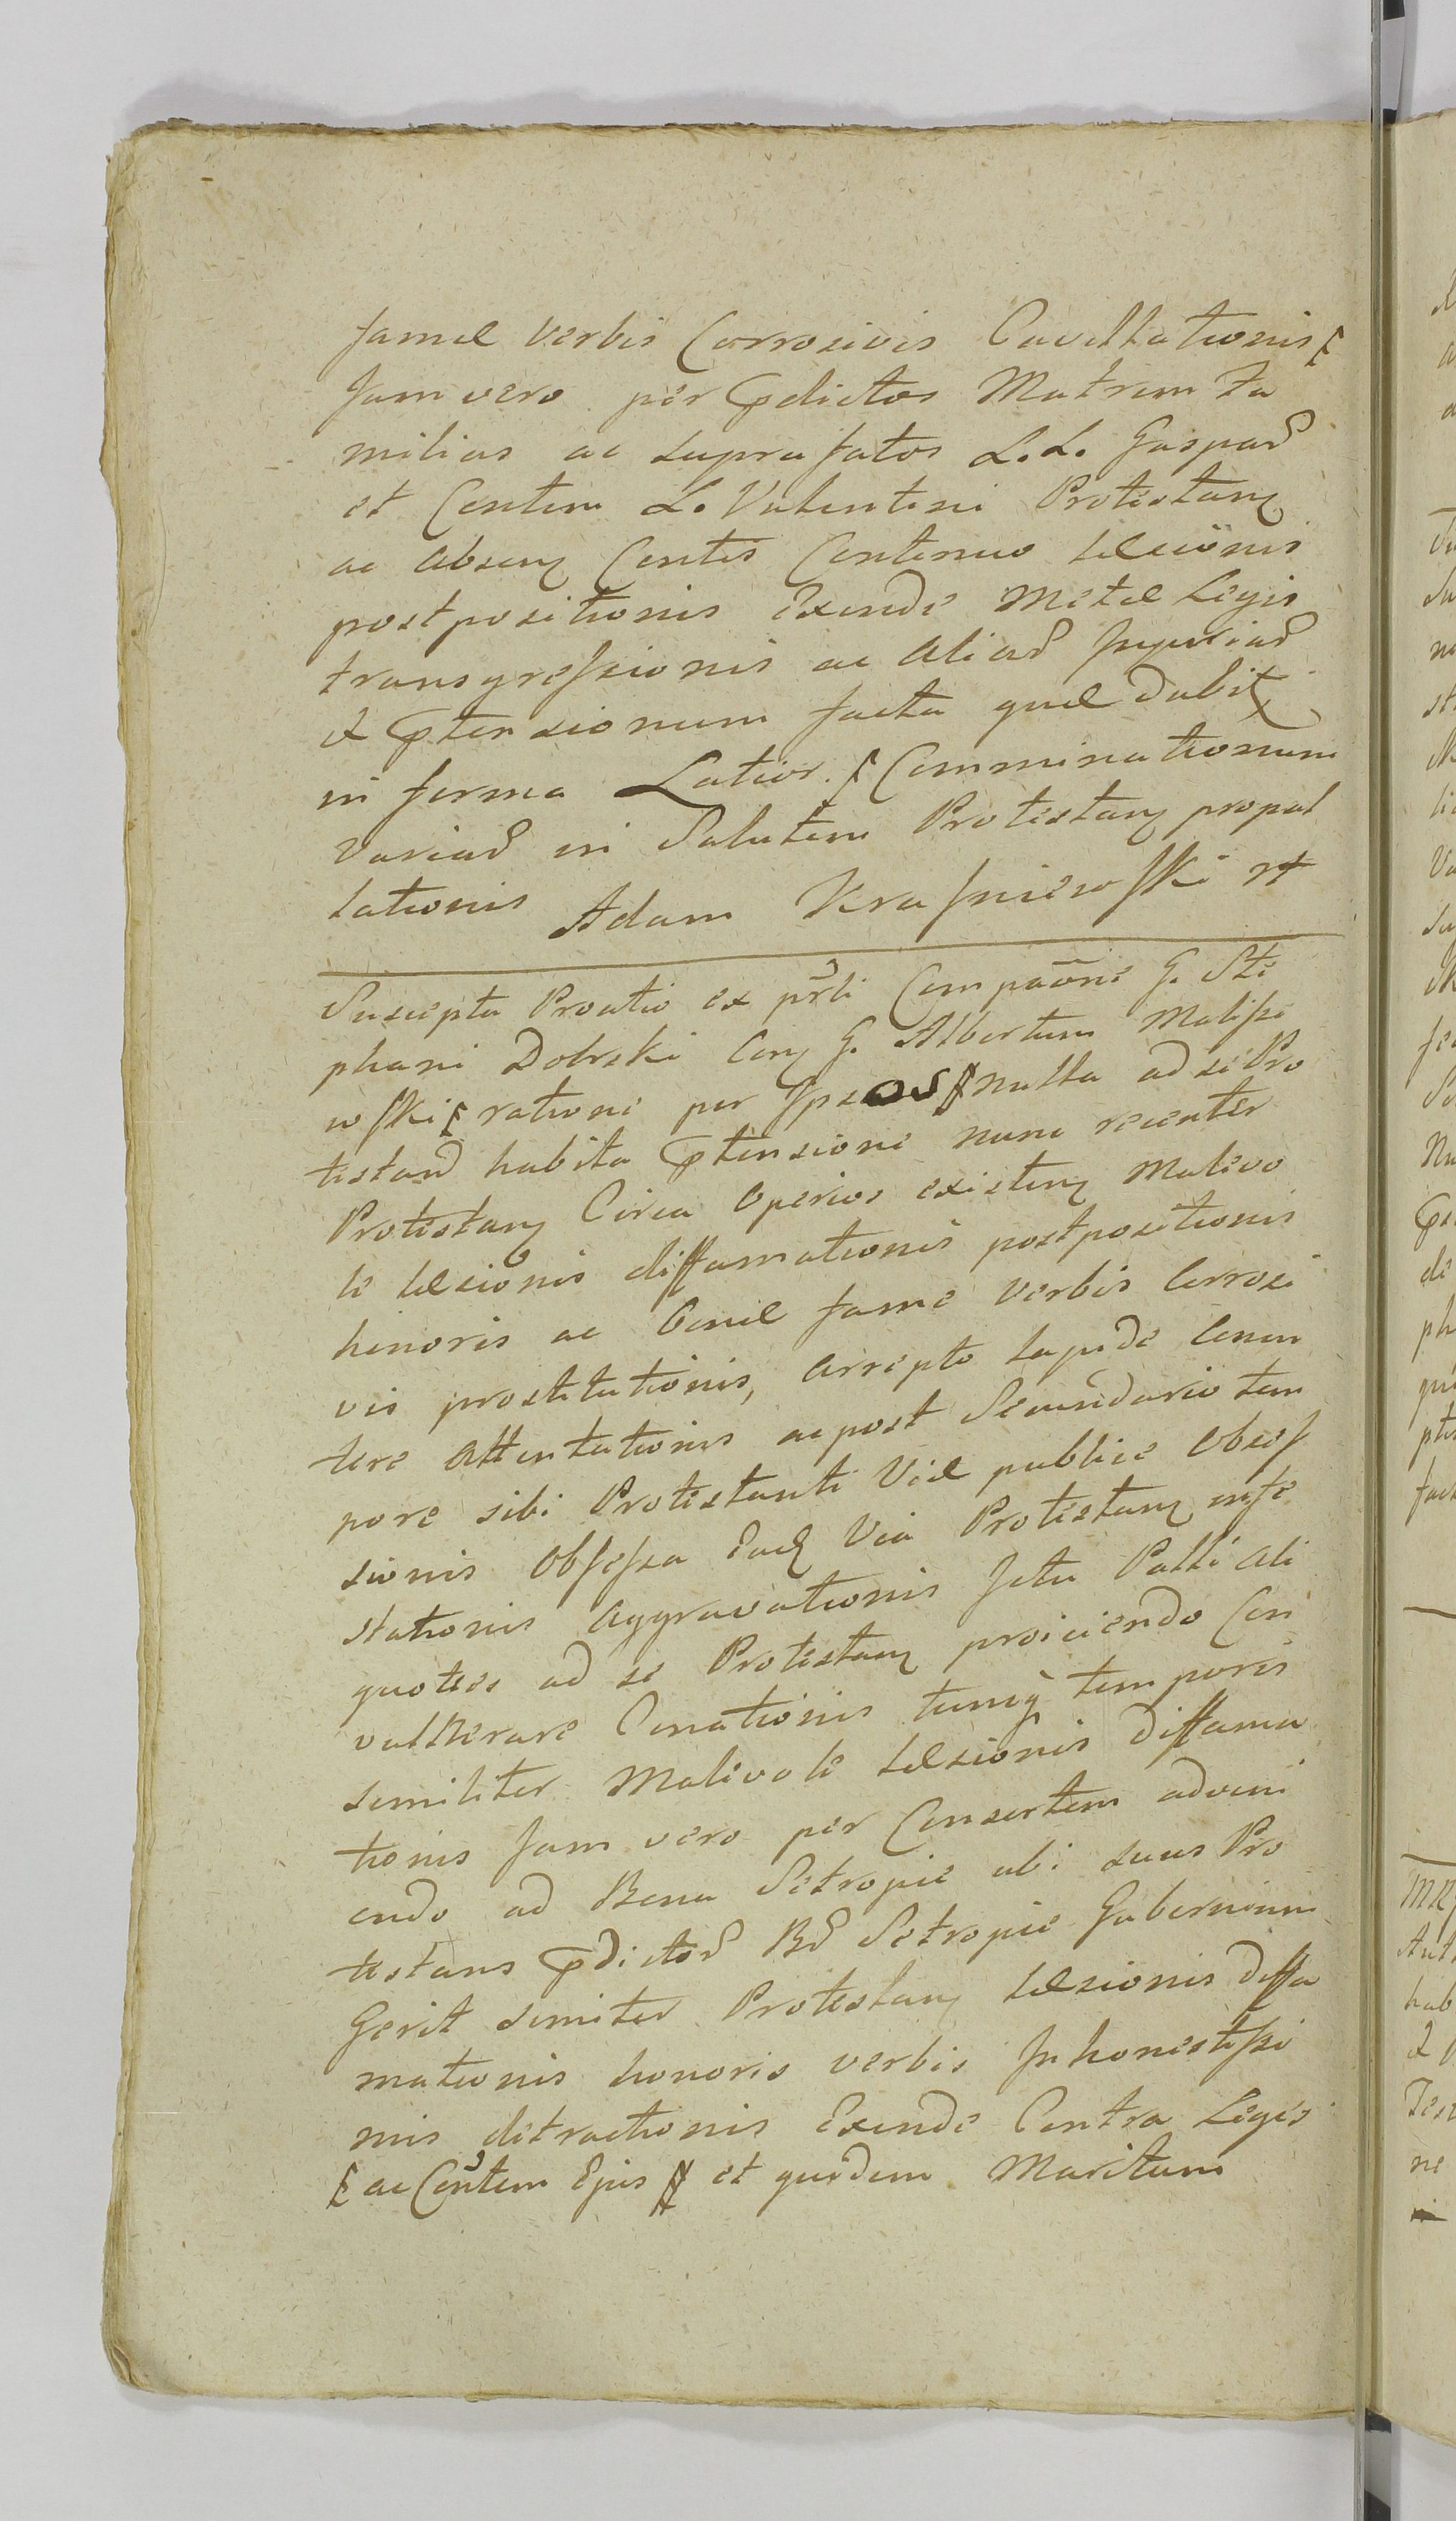 famæ verbis Corrosivis Cavillationis
Jam vero per Pdictos Matrem fa
milias ac suprafatos L. L. Gaspar
et Contem L. Valentini Protestan
ac absen Contis Continuo læsionis
postpositionis Exinde Metæ Legis
transgressionis ac aliar Injuriar
et Ptensionum facta quæ dabit
in forma Latior. Comminationum
variar in Salutem Protestan propal
lationis Adam Krasniewski
Suscepta Protio ex prsli Compaone G. Ste
phani Dobrski Con G. Albertum Malisze
wski ratione per Ipsos nulla ad se Pro
testan habita Ptensione nunc recenter
Protestan Circa Operios existen Malevo
le læsionis diffamationis postpositionis
honoris ac bonæ famæ verbis Corrosi
vis prostitutionis, arrepto lapide Concu
tere attentationis ac post Secundario tem
pore sibi Protestanti Viæ publice Obsess
sionis Obsessa Ead Via Protestan infe
stationis aggravationis Ictu Palli ali
quoties ad se Protestan proiiciendo Con
vulnerare Conationis tumq temporis
similiter Malevole læsionis Diffama
tionis Jam vero per Consortem adveni
endo ad Bona Setropie ubi suus Pro
testans Pdictor Br Setropie Gubernium
Gerit simiter Protestan læsionis Diffa
mationis honoris verbis Inhonestissi
mis detractionis Exinde Contra Leges
ac Contem Ejus et quidem Maritum